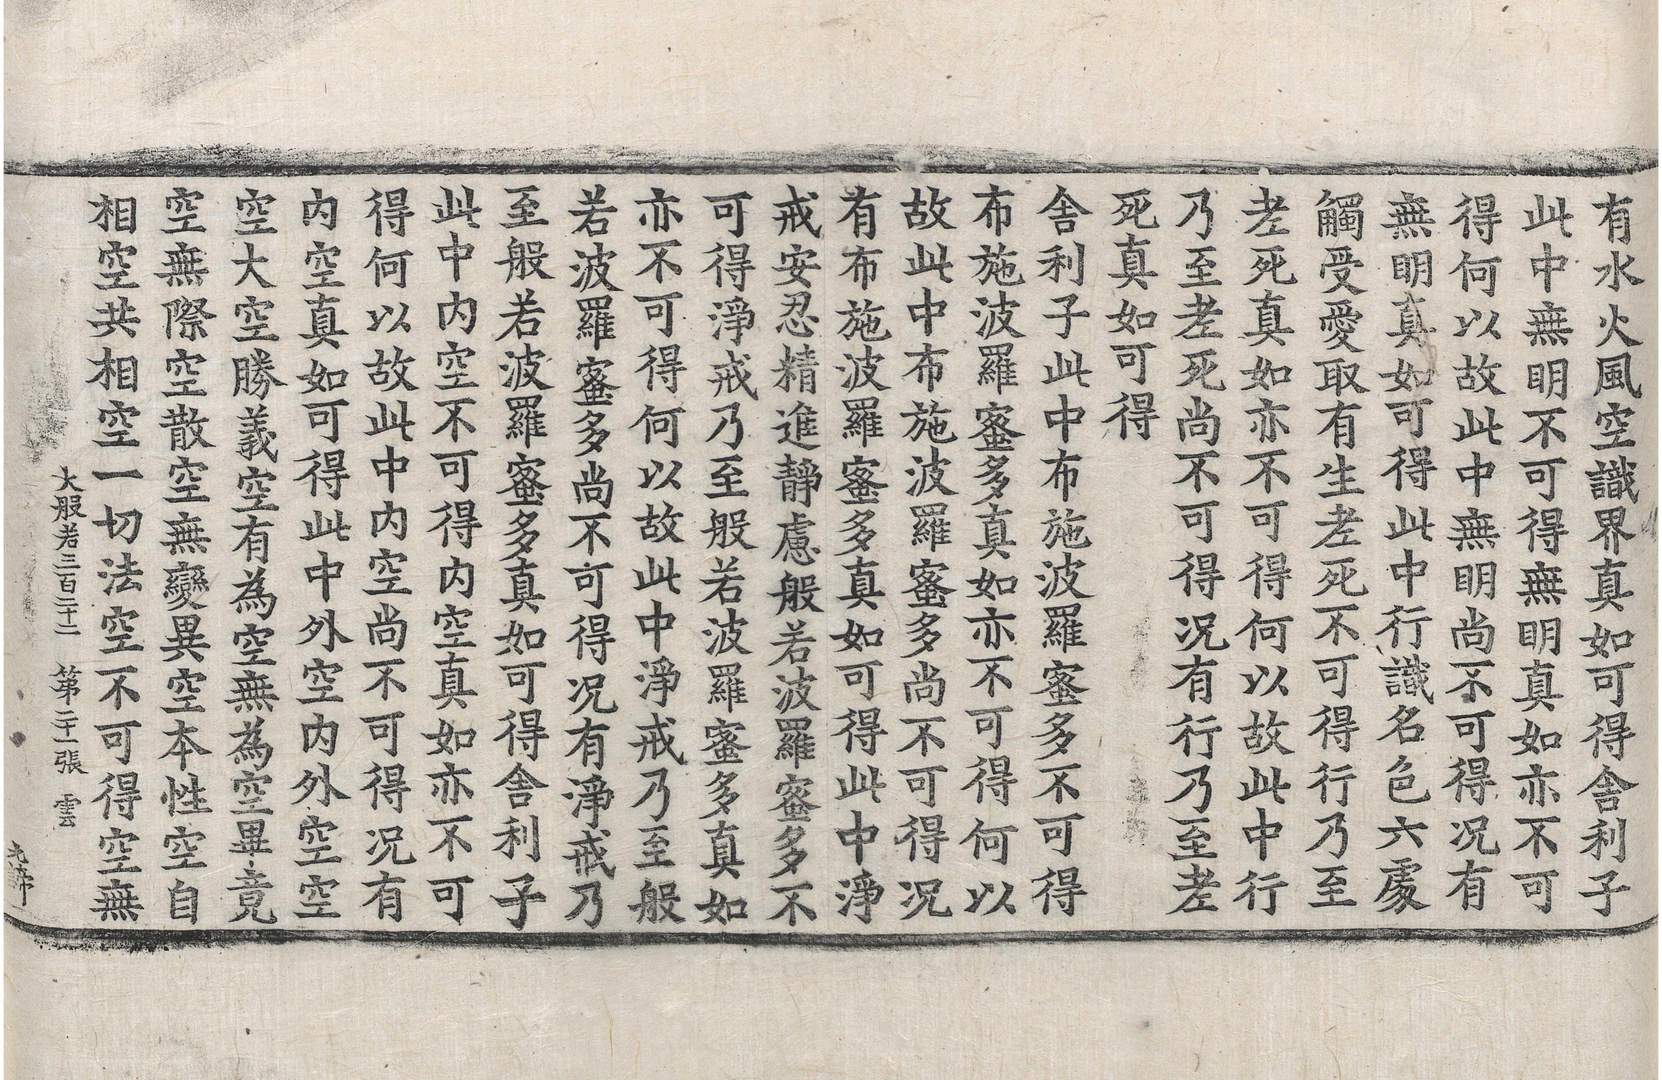 有水火風空識界真如可得舎利子
此中無明不可得無明真如亦不可
得何以故此中無明尚不可得况有
無明真如可得此中行識名色六處
觸受愛取有生老死不可得行乃至
老死真如亦不可得何以故此中行
乃至老死尚不可得况有行乃至老
死真如可得
舎利子此中布施波羅蜜多不可得
布施波羅蜜多真如亦不可得何以
故此中布施波羅蜜多尚不可得况
有布施波羅蜜多真如可得此中淨
戒安忍精進靜慮般若波羅蜜多不
可得淨戒乃至般若波羅蜜多真如
亦不可得何以故此中淨戒乃至般
若波羅蜜多尚不可得况有淨戒乃
至般若波羅蜜多真如可得舎利子
此中内空不可得内空真如亦不可
得何以故此中内空尚不可得况有
内空真如可得此中外空内外空空
空大空勝義空有為空無為空畢竟
空無際空散空無變異空本性空自
相空共相空一切法空不可得空無
大般若三百二十一 第二十一張 雲